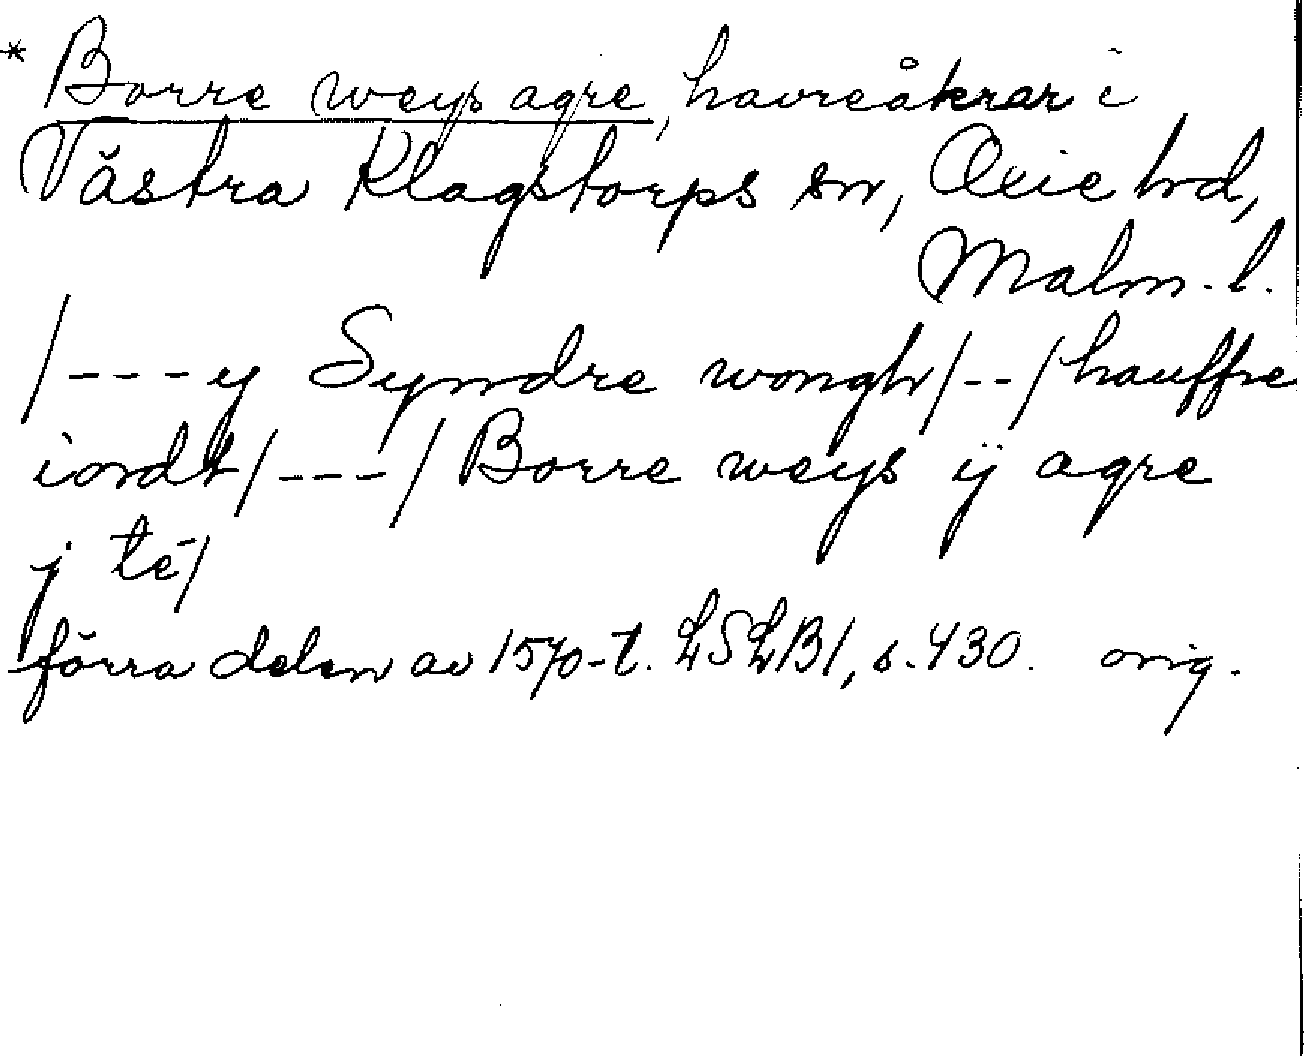 * Borre weys agre, havreåkrar i
Västra Klagstorps sn, Oxie hd,
Malm. l.
/---y Syndre wongh/--/hauffre
iordt/---/Borre weys ij agre
j te/
förra delen av 1570-t. LSLB1, s. 430. orig.